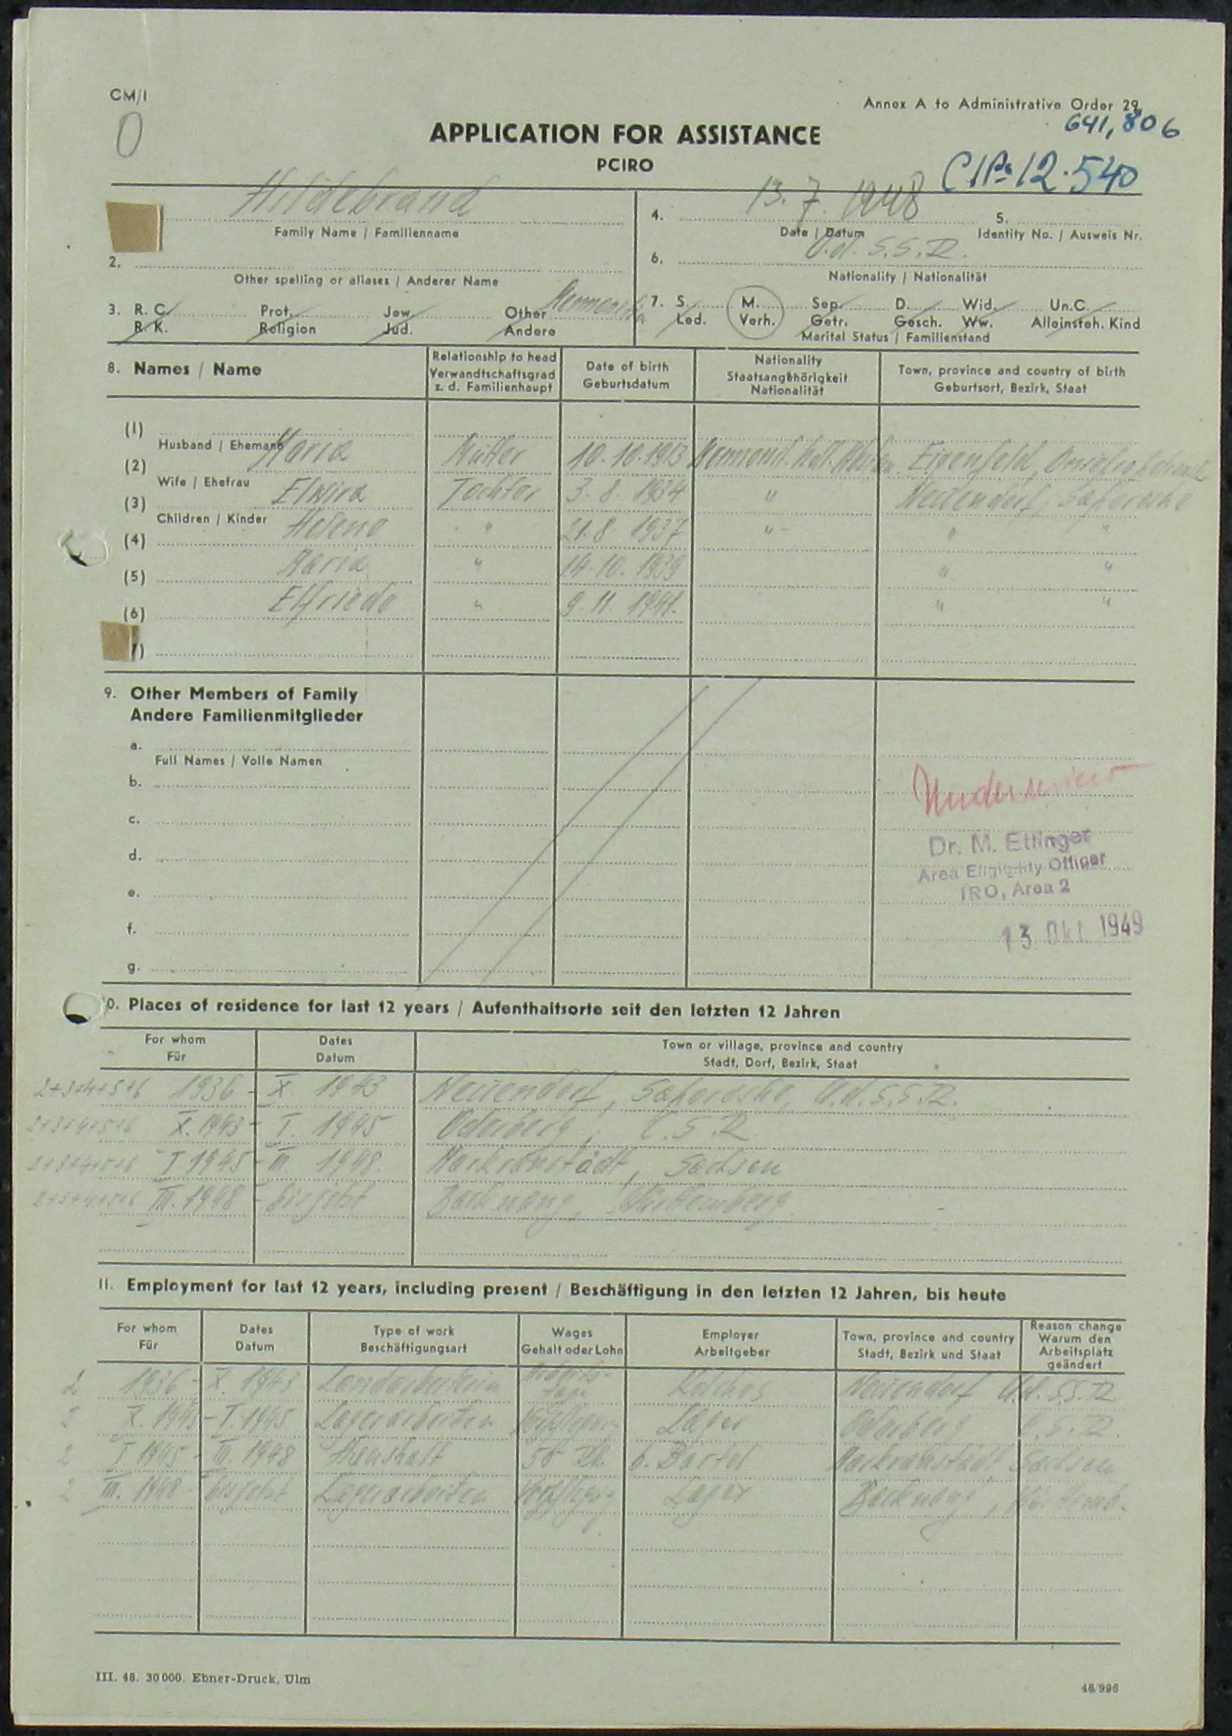 CM/I
Annex A to Administrative Order 29
641,806
0
APPLICATION FOR ASSISTANCE
PCIRO
C/Ps 12.540
Hildebrand
Family Name / Familienname
4. 13. 7. 1948
Date / Datum
5.
Identity No. / Ausweis Nr.
2.
Other spelling or aliases / Anderer Name
6. U.d.S.S.R.
Nationality / Nationalität
3. R. C. Prot. Jew Other
R. K. Religion Jud. Andere
7. S. M. Sep. D. Wid. Un.C.
Led. Verh. Getr. Gesch. Ww. Alleinsteh. Kind
Marital Status / Familienstand
8. Names / Name
Relationship to head
Verwandtschaftsgrad
z. d. Familienhaupt
Date of birth
Geburtsdatum
Nationality
Staatsangehörigkeit
Nationalität
Town, province and country of birth
Geburtsort, Bezirk, Staat
(1)
Husband / Ehemann
(2) Maria Mutter 10. 10. 1913
Wife / Ehefrau
(3) Elwira Tochter 3. 8. 1934 " Neuendorf,
Children / Kinder
(4) Helene " 21. 8 1937 " " "
(5) Maria " 14. 10. 1939 " "
(6) Elfriede " 9. 11. 1941. " "
7)
9. Other Members of Family
Andere Familienmitglieder
a.
Full Names / Volle Namen
b.
c.
d.
e.
f.
g.
Dr. M. Ettinger
Area Eligibility Officer
IRO, Area 2
13 Okt. 1949
0. Places of residence for last 12 years / Aufenthaltsorte seit den letzten 12 Jahren
For whom
Für
Dates
Datum
Town or village, province and country
Stadt, Dorf, Bezirk, Staat
2+3+4+5+6 1936 - X 1943 Neuendorf, U.d.S.S.R.
2+3+4+5+6 X. 1943 - I. 1945 Oderberg, C.S.R.
2+3+4+5+6 I 1945 - III. 1948. Markranstädt, Sachsen
2+3+4+5+6 III. 1948 - bis jetzt Backnang, Württemberg
11. Employment for last 12 years, including present / Beschäftigung in den letzten 12 Jahren, bis heute
For whom
Für
Dates
Datum
Type of work
Beschäftigungsart
Wages
Gehalt oder Lohn
Employer
Arbeitgeber
Town, province and country
Stadt, Bezirk und Staat
Reason change
Warum den
Arbeitsplatz
geändert
2 1936 - X. 1943 Landarbeiterin Arbeits-tage Kolchos Neuendorf U.d.S.S.R
2 X. 1943 - I. 1945 Lagerarbeiten Lager Oderberg C.S.R.
2 I 1945 - III. 1948 Markranstädt Sachsen
2 III. 1948 - bis jetzt Lagerarbeiten Lager Backnang,
III. 48. 30000. Ebner-Druck, Ulm
48/996